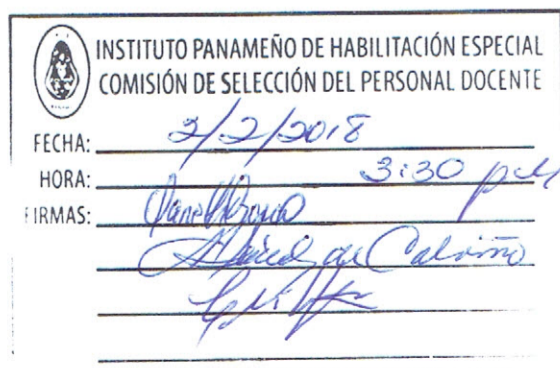 INSTITUTO PANAMEÑO DE HABILITACIÓN ESPECIAL
COMISIÓN DE SELECCIÓN DEL PERSONAL DOCENTE
FECHA: 2/2/2018
HORA: 3:30 pm
FIRMAS:
de Calviño